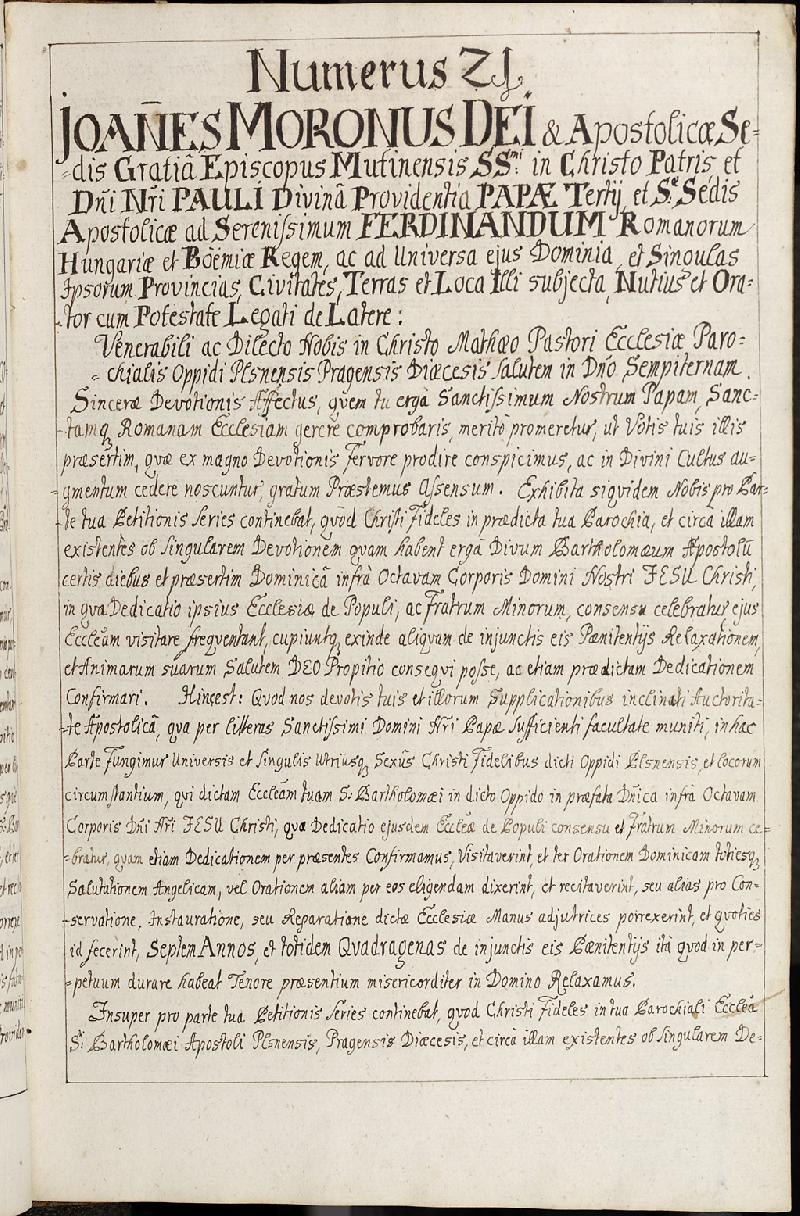 Numerus 21.
JOAÑES MORONUS DEI & Apostolicæ Se=
=dis Gratiâ Episcopus Mutinensis SS.mi in Christo Patris et
Dn̄i Nr̄i PAULI Divinâ Providentia PAPÆ Tertij et S.æ Sedis
Apostolicæ ad Serenissimum FERDINANDUM Romanorum
Hungariæ et Boëmiæ Regem, ac ad Universa ejus Dominia, et Singulas
Ipsorum Provincias, Civitates, Terras et Loca Illi subjecta, Nutius et Ora=
=tor cum Potestate Legati de Latere:
Venerabili ac Dilecto Nobis in Christo Mathæo Pastori Ecclesiæ Paro=
=chialis Oppidi Plsnensis Pragensis Diæcesis Salutem in Dn̄o Sempiternam.
Sinceræ Devotionis Affectus, quem tu ergà Sanctissimum Nostrum Papam, Sanc=
=tamq3 Romanam Ecclesiam gerere comprobaris, meritò promeretur, ut Votis tuis illis
præsertim, quæ ex magno Devotionis Fervore prodire conspicimus, ac in Divini Cultus au=
=gmentum cedere noscuntur, gratum Præstemus Assensum. Exhibita siquidem Nobis pro Par=
=te tua Petitionis Series continebat, quòd Christi Fideles in prædicta tua Parochia, et circa illam
existentes ob Singularem Devotionem quam habent ergà Divum Bartholomæum Apostolū
certis diebus et præsertim Dominicâ infrà Octavam Corporis Domini Nostri JESU Christi,
in qua Dedicatio ipsius Ecclesiæ de Populi, ac Fratrum Minorum, consensu celebratur, ejus
Eccleām visitare frequentant, cupiuntq3 exinde aliquam de injunctis eis Pænitentijs Relaxationem,
et Animarum suarum Salutem DEO Propitio consequi posse, ac etiam prædictam Dedicationem
Confirmari. Hinc est: Quod nos devotis tuis et illorum Supplicationibus inclinati Auctorita=
=te Apostolicâ, qua per litteras Sanctissimi Domini Nr̄i Papæ Sufficienti facultate muniti, in hac
Parte Fungimur Universis et Singulis Utriusq3 Sexûs Christi Fidelibus dicti Oppidi Plsnensis, et locorum
circumstantium, qui dictam Eccleām tuam S. Bartholomæi in dicto Oppido in præfata Dn̄ica infrà Octavam
Corporis Dn̄i Nr̄i JESU Christi, qua Dedicatio ejusdem Eccleæ de Populi consensu et Fratrum Minorum ce=
=bratur, quam etiam Dedicationem per præsentes Confirmamus, Visitaverint, et ter Orationem Dominicam totiesq3
Salutationem Angelicam, vel Orationem aliam per eos eligendam dixerint, et recitaverint, seu alias pro Con=
=servatione, Instauratione, seu Reparatione dictæ Ecclesiæ Manus adjutrices porrexerint, et quoties
id fecerint, Septem Annos, et totidem Quadragenas de injunctis eis Pænitentijs ità quod in per=
=petuum durare habeat Tenore præsentium misericorditer in Domino Relaxamus.
Insuper pro parte tua Petitionis Series continebat, quod Christi Fideles in tua Parochiali Ecclēa
S.ti Bartholomæi Apostoli Plsnensis, Pragensis Diæcesis, et circà illam existentes ob Singularem De=